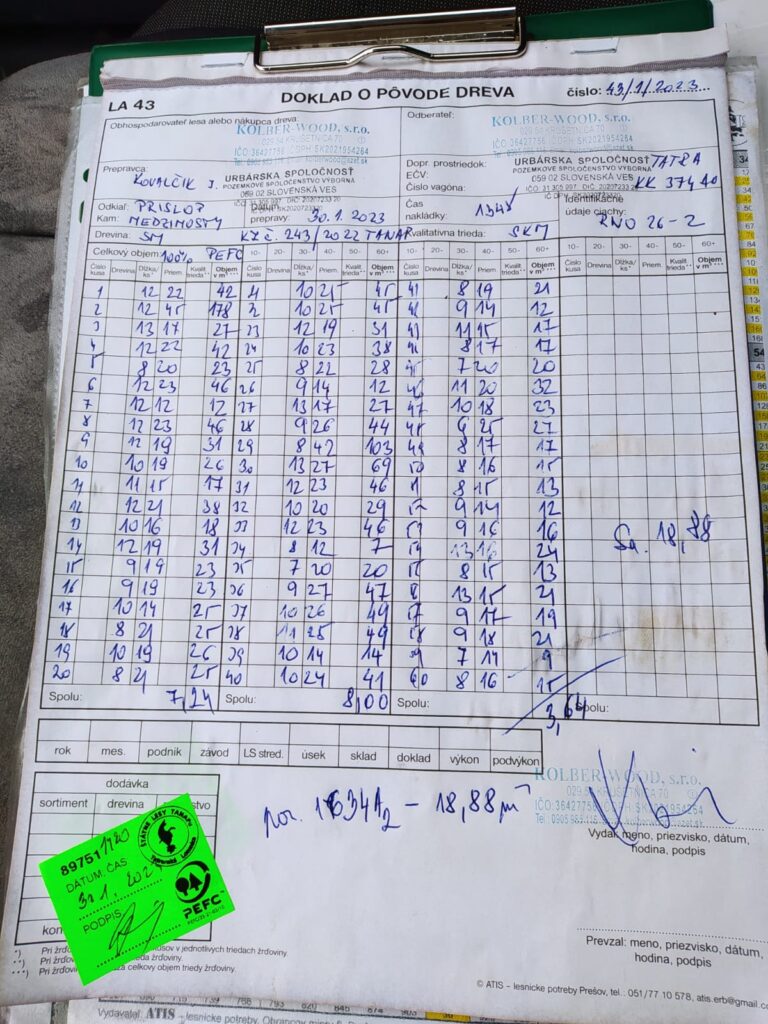 LA 43 DOKLAD O PÔVODE DREVA číslo: 43/1/2023
Obhospodarovateľ lesa alebo nákupca dreva:
KOLBER-WOOD, s.r.o.
029 54 KRUŠETNICA 70
Odberateľ:
KOLBER-WOOD, s.r.o.
029 54 KRUŠETNICA 70
Prepravca: KOVALČIK J.
URBÁRSKA SPOLOČNOSŤ
POZEMKOVÉ SPOLOČENSTVO VÝBORNÁ
059 02 SLOVENSKÁ VES
Dopr. prostriedok: TATRA
EČV:
Číslo vagóna: KK 374
URBÁRSKA SPOLOČNOSŤ
POZEMKOVÉ SPOLOČENSTVO VÝBORNÁ
059 02 SLOVENSKÁ VES
Odkiaľ: PRISLOP
Kam: MEDZIMOSTY
Dátum
prepravy: 30.1.2023
Čas
nakládky: 1345
Identifikačné
údaje ciachy: RNO 26-2
Drevina: SM KZ č. 243/2022 TANAP Kvalitatívna trieda: SKM
Celkový objem: 100% PEFC 10- 20- 30- 40- 50- 60+ 10- 20- 30- 40- 50- 60+ 10- 20- 30- 40- 50- 60+
Číslo kusa Drevina Dĺžka/ks* Priem. Kvalit. trieda** Objem v m³*** Číslo kusa Drevina Dĺžka/ks* Priem. Kvalit. trieda** Objem v m³*** Číslo kusa Drevina Dĺžka/ks* Priem. Kvalit. trieda** Objem v m³*** Číslo kusa Drevina Dĺžka/ks* Priem. Kvalit. trieda** Objem v m³***
1 12 22 42 21 10 25 45 41 8 19 21
2 12 45 178 2 10 25 45 42 9 14 12
3 13 17 27 23 12 19 31 43 11 15 17
4 12 22 42 24 10 23 38 44 8 17 17
5 8 20 23 25 8 22 28 45 7 20 20
6 12 23 46 26 9 14 12 46 11 20 32
7 12 12 12 27 13 17 27 47 10 18 23
8 12 23 46 28 9 26 44 48 6 25 27
9 12 19 31 29 8 42 103 49 8 17 17
10 10 19 26 30 13 27 69 50 8 16 15
11 11 15 17 31 12 23 46 8 15 13
12 12 21 38 32 10 20 29 9 14 12
13 10 16 18 33 12 23 46 53 9 16 16 Sa. 18,88
14 12 19 31 34 8 12 7 54 13 16 24
15 9 19 23 35 7 20 20 8 15 13
16 9 19 23 36 9 27 47 13 15 21
17 10 14 25 37 10 26 49 57 9 17 19
18 8 21 25 38 11 25 49 58 9 18 21
19 10 19 26 39 10 14 14 7 14 9
20 8 21 25 40 10 24 41 60 8 16 15
Spolu: 7,24 Spolu: 8,00 Spolu: 3,64 Spolu:
rok mes. podnik závod LS stred. úsek sklad doklad výkon podvýkon
dodávka
sortiment drevina
por. 1634A2 – 18,88 m³
KOLBER-WOOD, s.r.o.
029 54 KRUŠETNICA 70
Vydal: meno, priezvisko, dátum,
hodina, podpis
ŠTÁTNE LESY TANAPU
Tatranská Lomnica
89751 1420
DÁTUM, ČAS
30.1.202
PODPIS
PEFC
Prevzal: meno, priezvisko, dátum,
hodina, podpis
*) Pri žrďo kusov v jednotlivých triedach žrďoviny.
**) Pri žrďo eda žrďoviny.
***) Pri žrďovin za celkový objem triedy žrďoviny.
© ATIS – lesnícke potreby Prešov, tel.: 051/77 10 578, atis.erb@gmail.c
Vydavateľ: ATIS – lesnícke potreby